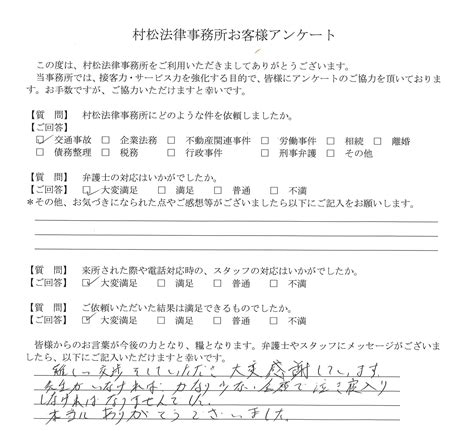 村松法律事務所お客様アンケート
この度は、村松法律事務所をご利用いただきましてありがとうございます。
当事務所では、接客力・サービス力を強化する目的で、皆様にアンケートのご協力を頂いておりま
す。お手数ですが、ご協力いただけますと幸いです。
【質 問】 村松法律事務所にどのような件を依頼しましたか。
【ご回答】
☑ 交通事故 □ 企業法務 □ 不動産関連事件 □ 労働事件 □ 相続 □ 離婚
□ 債務整理 □ 税務 □ 行政事件 □ 刑事弁護 □ その他
【質 問】 弁護士の対応はいかがでしたか。
【ご回答】 ☑ 大変満足 □ 満足 □ 普通 □ 不満
*その他、お気づきになられた点やご感想等がございましたら以下にご記入をお願いします。
【質 問】 来所された際や電話対応時の、スタッフの対応はいかがでしたか。
【ご回答】 ☑ 大変満足 □ 満足 □ 普通 □ 不満
【質 問】 ご依頼いただいた結果は満足できるものでしたか。
【ご回答】 ☑ 大変満足 □ 満足 □ 普通 □ 不満
皆様からのお言葉が今後の力となり、糧となります。弁護士やスタッフにメッセージがございま
したら、以下にご記入いただけますと幸いです。
難しい交渉をしていただき大変感謝しています。
先生がいなければ 泣き寝入り
しなければなりませんでした。
本当にありがとうございました。